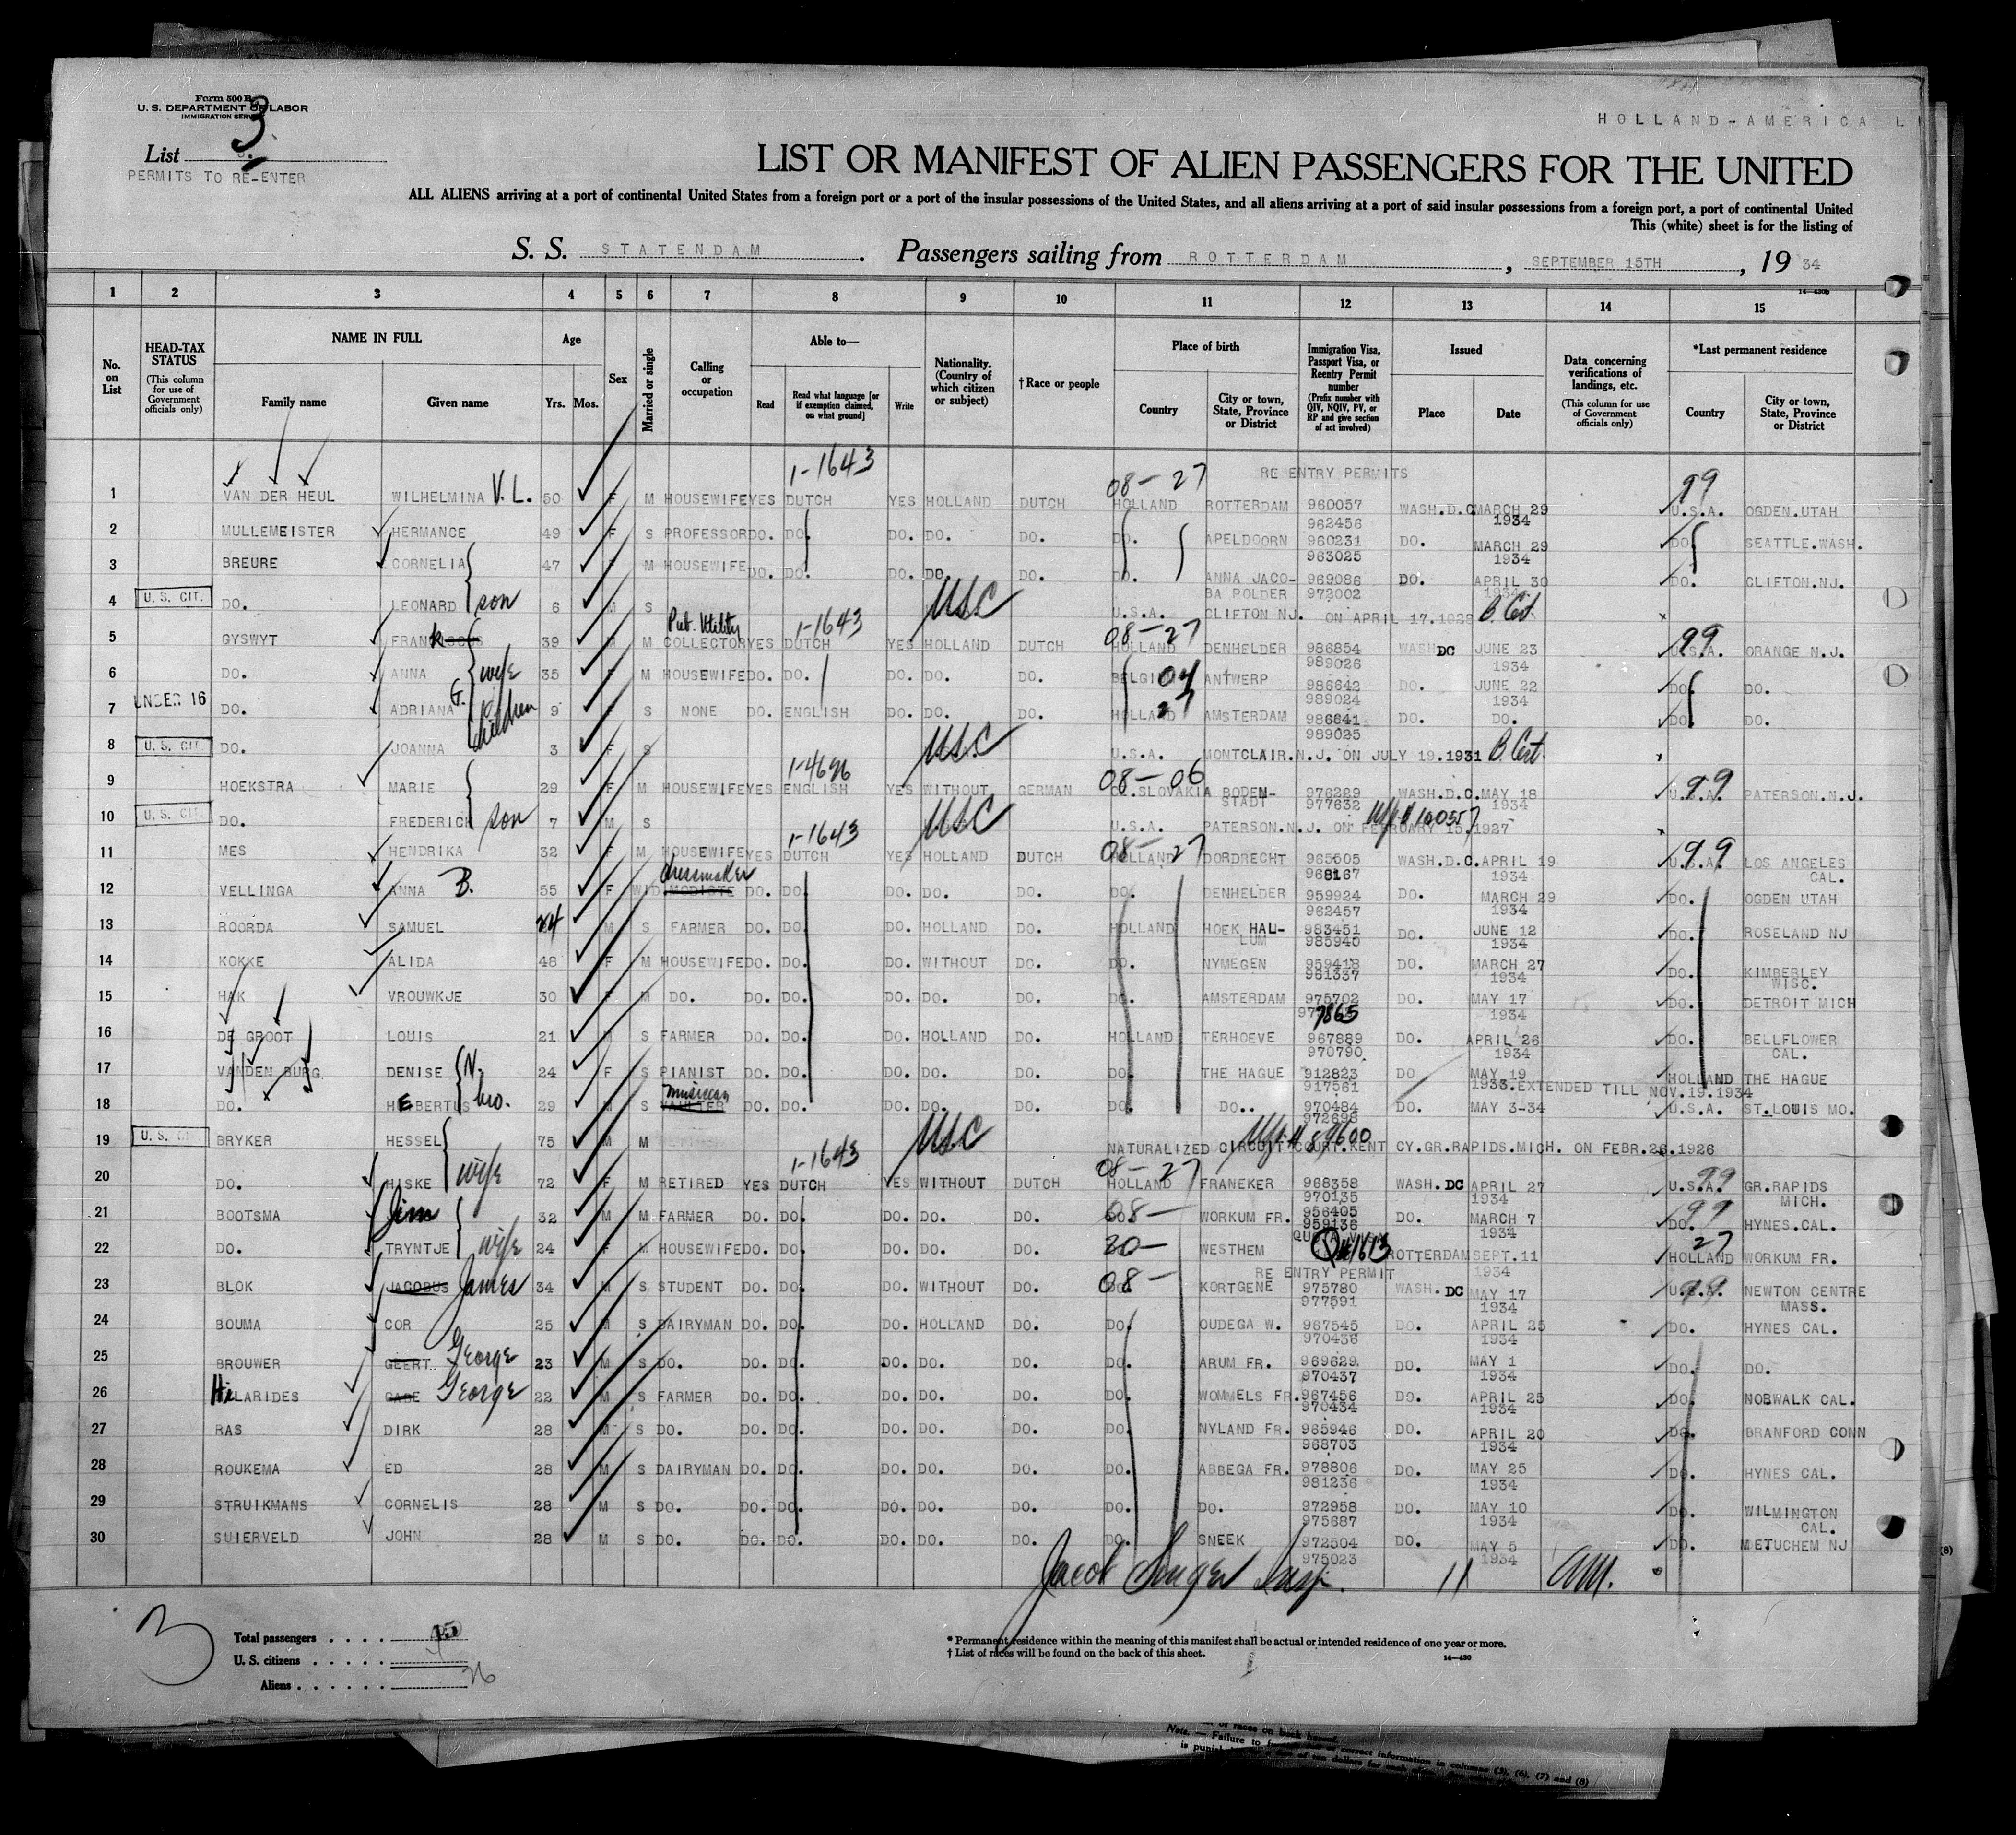 Form 500 B
U. S. DEPARTMENT OF LABOR
IMMIGRATION SERVICE
3
List
PERMITS TO RE-ENTER
HOLLAND-AMERICA LI
LIST OR MANIFEST OF ALIEN PASSENGERS FOR THE UNITED
ALL ALIENS arriving at a port of continental United States from a foreign port or a port of the insular possessions of the United States, and all aliens arriving at a port of said insular possessions from a foreign port, a port of continental United
This (white) sheet is for the listing of
S. S. STATENDAM. Passengers sailing from ROTTERDAM, SEPTEMBER 15TH, 19 34
14—430b
1 2 3 4 5 6 7 8 9 10 11 12 13 14 15
No. on List
HEAD-TAX STATUS (This column for use of Government officials only)
NAME IN FULL Family name Given name
Age Yrs. Mos.
Sex
Married or single
Calling or occupation
Able to— Read Read what language [or if exemption claimed, on what ground] Write
Nationality. (Country of which citizen or subject)
†Race or people
Place of birth Country City or town, State, Province or District
Immigration Visa, Passport Visa, or Reentry Permit number (Prefix number with QIV, NQIV, PV, or RP and give section of act involved)
Issued Place Date
Data concerning verifications of landings, etc. (This column for use of Government officials only)
*Last permanent residence Country City or town, State, Province or District
1-1643 08-27 RE ENTRY PERMITS 99
1 VAN DER HEUL WILHELMINA V. L. 50 F M HOUSEWIFE YES DUTCH YES HOLLAND DUTCH HOLLAND ROTTERDAM 960057 962456 WASH.D.C. MARCH 29 1934 U.S.A. OGDEN.UTAH
2 MULLEMEISTER HERMANCE 49 F S PROFESSOR DO. DO. DO. DO. DO. DO. APELDOORN 960231 963025 DO. MARCH 29 1934 DO. SEATTLE.WASH.
3 BREURE CORNELIA 47 F M HOUSEWIFE DO. DO. DO. DO. DO. DO. ANNA JACO-BA POLDER 969086 972002 DO. APRIL 30 1934 DO. CLIFTON.NJ.
4 U. S. CIT. DO. LEONARD son 6 M S USC U.S.A. CLIFTON NJ. ON APRIL 17.1928 B Cert.
Put. Utility 1-1643 08-27 99
5 GYSWYT FRANK 39 M M COLLECTOR YES DUTCH YES HOLLAND DUTCH HOLLAND DENHELDER 986854 989026 WASH DC JUNE 23 1934 U.S.A. ORANGE N.J.
6 DO. ANNA wife 35 F M HOUSEWIFE DO. DO. DO. DO. DO. BELGIUM 04 ANTWERP 986642 989024 DO. JUNE 22 1934 DO. DO.
7 UNDER 16 DO. ADRIANA G. children 9 F S NONE DO. ENGLISH DO. DO. DO. HOLLAND 27 AMSTERDAM 986641 989025 DO. DO. DO. DO.
8 U. S. CIT. DO. JOANNA 3 F S USC U.S.A. MONTCLAIR.N.J. ON JULY 19.1931 B Cert.
1-4696 08-06 99
9 HOEKSTRA MARIE 29 F M HOUSEWIFE YES ENGLISH YES WITHOUT GERMAN CZ.SLOVAKIA BODEN-STADT 976289 977632 WASH.D.C. MAY 18 1934 U.S.A. PATERSON.N.J.
10 U. S. CIT. DO. FREDERICK son 7 M S USC U.S.A. PATERSON.N.J. ON FEBRUARY 15.1927
1-1643 08-27 99
11 MES HENDRIKA 32 F M HOUSEWIFE YES DUTCH YES HOLLAND DUTCH HOLLAND DORDRECHT 965505 968167 WASH.D.C. APRIL 19 1934 U.S.A. LOS ANGELES CAL.
12 VELLINGA ANNA B. 55 F WID MODISTE dressmaker DO. DO. DO. DO. DO. DO. DENHELDER 959924 962457 DO. MARCH 29 1934 DO. OGDEN UTAH
13 ROORDA SAMUEL 24 M S FARMER DO. DO. DO. HOLLAND DO. HOLLAND HOEK HAL-LUM 983451 985940 DO. JUNE 12 1934 DO. ROSELAND NJ
14 KOKKE ALIDA 48 F M HOUSEWIFE DO. DO. DO. WITHOUT DO. DO. NYMEGEN 959418 961337 DO. MARCH 27 1934 DO. KIMBERLEY WISC.
15 HAK VROUWKJE 30 F M DO. DO. DO. DO. DO. DO. DO. AMSTERDAM 975702 977865 DO. MAY 17 1934 DO. DETROIT MICH
16 DE GROOT LOUIS 21 M S FARMER DO. DO. DO. HOLLAND DO. HOLLAND TERHOEVE 967889 970790 DO. APRIL 26 1934 DO. BELLFLOWER CAL.
17 VANDEN BURG DENISE N. 24 F S PIANIST DO. DO. DO. DO. DO. DO. THE HAGUE 912823 917561 DO. MAY 19 1933.EXTENDED TILL NOV.19.1934 HOLLAND THE HAGUE
18 DO. HEBERTUS bro. 29 M S musician DO. DO. DO. DO. DO. DO. DO.. 970484 972698 DO. MAY 3-34 U.S.A. ST.LOUIS MO.
19 U. S. CIT. BRYKER HESSEL 75 M M USC NATURALIZED CIRCUIT COURT.KENT CY.GR.RAPIDS.MICH. ON FEBR.26.1926
1-1643 08-27 99
20 DO. HISKE wife 72 F M RETIRED YES DUTCH YES WITHOUT DUTCH HOLLAND FRANEKER 968358 970135 WASH. DC APRIL 27 1934 U.S.A. GR.RAPIDS MICH.
21 BOOTSMA Jim 32 M M FARMER DO. DO. DO. DO. DO. DO. 08- WORKUM FR. 956405 959136 DO. MARCH 7 1934 DO. 99 HYNES.CAL.
QUOTA VISA
22 DO. TRYNTJE wife 24 F M HOUSEWIFE DO. DO. DO. DO. DO. 20- WESTHEM Q#1613 ROTTERDAM SEPT.11 1934 HOLLAND 27 WORKUM FR.
RE ENTRY PERMIT
23 BLOK JACOBUS James 34 M S STUDENT DO. DO. DO. WITHOUT DO. DO. 08- KORTGENE 975780 977591 WASH. DC MAY 17 1934 U.S.A. 99 NEWTON CENTRE MASS.
24 BOUMA COR 25 M S DAIRYMAN DO. DO. DO. HOLLAND DO. DO. OUDEGA W. 967545 970436 DO. APRIL 25 1934 DO. HYNES CAL.
25 BROUWER GEERT. George 23 M S DO. DO. DO. DO. DO. DO. DO. ARUM FR. 969629 970437 DO. MAY 1 1934 DO. DO.
26 HILARIDES George 22 M S FARMER DO. DO. DO. DO. DO. DO. WOMMELS FR. 967456 970434 DO. APRIL 25 1934 DO. NORWALK CAL.
27 RAS DIRK 28 M S DO. DO. DO. DO. DO. DO. DO. NYLAND FR. 965946 968703 DO. APRIL 20 1934 DO. BRANFORD CONN
28 ROUKEMA ED 28 M S DAIRYMAN DO. DO. DO. DO. DO. DO. ABBEGA FR. 978806 981236 DO. MAY 25 1934 DO. HYNES CAL.
29 STRUIKMANS CORNELIS 28 M S DO. DO. DO. DO. DO. DO. DO. DO. 972958 975687 DO. MAY 10 1934 DO. WILMINGTON CAL.
30 SUIERVELD JOHN 28 M S DO. DO. DO. DO. DO. DO. DO. SNEEK 972504 975023 DO. MAY 5 1934 DO. METUCHEM NJ
Jacob Singer Insp. 11
3
Total passengers . . . .
U. S. citizens . . . . . 4
Aliens . . . . . . 26
* Permanent residence within the meaning of this manifest shall be actual or intended residence of one year or more.
† List of races will be found on the back of this sheet.
14—430
of races on back hereof.
Note. — Failure to correct information in columns (3), (6), (7) and (8)